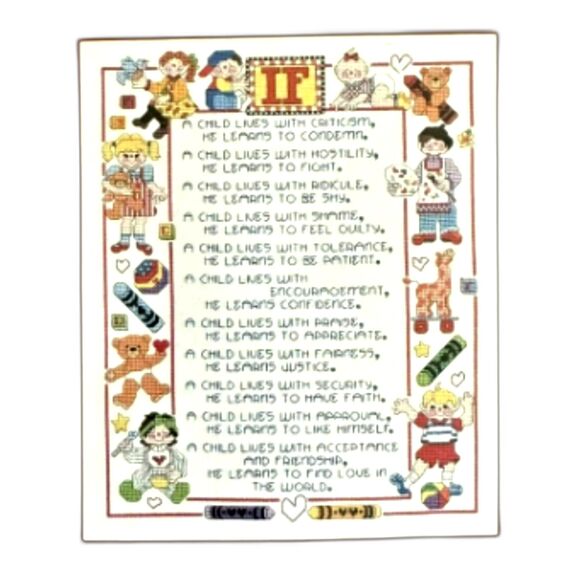 IF
A CHILD LIVES WITH CRITICISM,
HE LEARNS TO CONDEMN.
A CHILD LIVES WITH HOSTILITY,
HE LEARNS TO FIGHT.
A CHILD LIVES WITH RIDICULE,
HE LEARNS TO BE SHY.
A CHILD LIVES WITH SHAME,
HE LEARNS TO FEEL GUILTY.
A CHILD LIVES WITH TOLERANCE,
HE LEARNS TO BE PATIENT.
A CHILD LIVES WITH
ENCOURAGEMENT,
HE LEARNS CONFIDENCE.
A CHILD LIVES WITH PRAISE,
HE LEARNS TO APPRECIATE.
A CHILD LIVES WITH FAIRNESS,
HE LEARNS JUSTICE.
A CHILD LIVES WITH SECURITY,
HE LEARNS TO HAVE FAITH.
A CHILD LIVES WITH APPROVAL,
HE LEARNS TO LIKE HIMSELF.
A CHILD LIVES WITH ACCEPTANCE
AND FRIENDSHIP,
HE LEARNS TO FIND LOVE IN
THE WORLD.